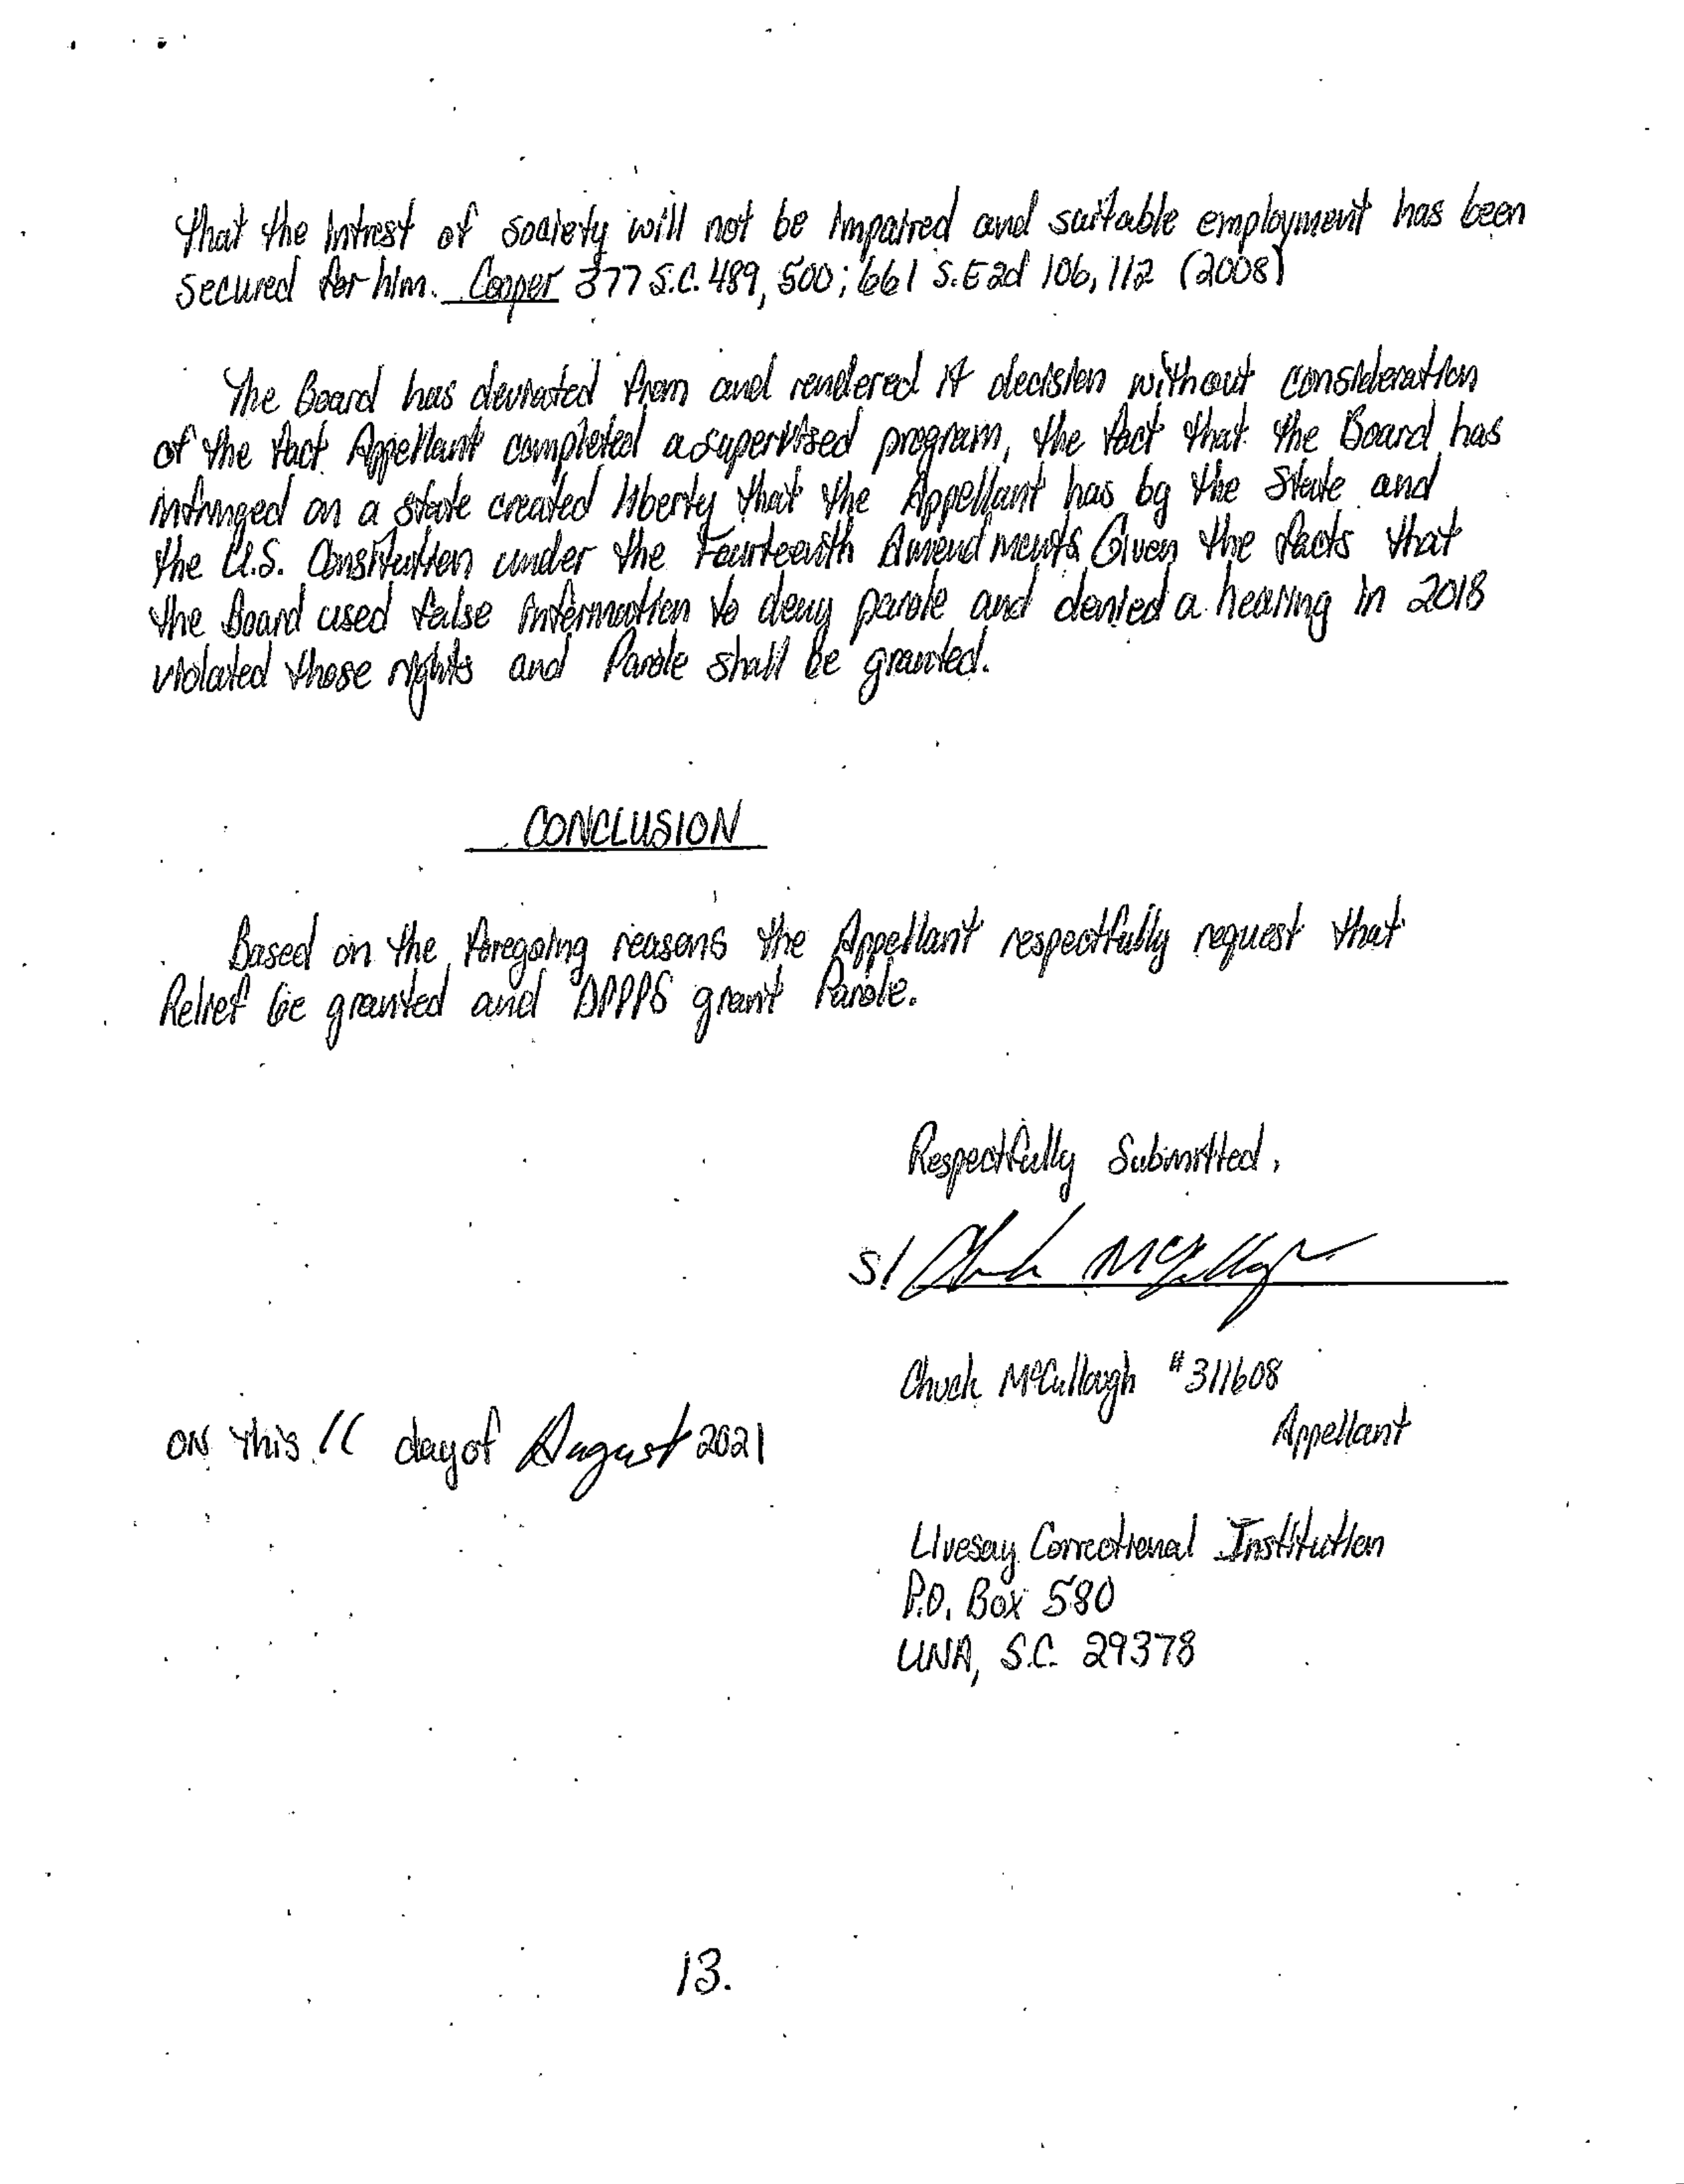 that the Intrest of society will not be impaired and suitable employment has been
secured for him. Cooper 377 S.C. 489, 500; 661 S.E 2d 106, 112 (2008)
The Board has deviated from and rendered it decision without consideration
of the fact Appellant completed a supervised program, the fact that the Board has
infringed on a state created liberty that the Appellant has by the State and
the U.S. Constitution under the Fourteenth Amendments Given the facts that
the Board used false information to deny parole and denied a hearing in 2018
violated those rights and Parole shall be granted.
CONCLUSION
Based on the foregoing reasons the Appellant respectfully request that
Relief be granted and DPPPS grant Parole.
Respectfully Submitted,
S/ Chuck McCullough
Chuck McCullough #311608
Appellant
ON this 11 day of August 2021
Livesay Correctional Institution
P.O. Box 580
UNA, S.C. 29378
13.